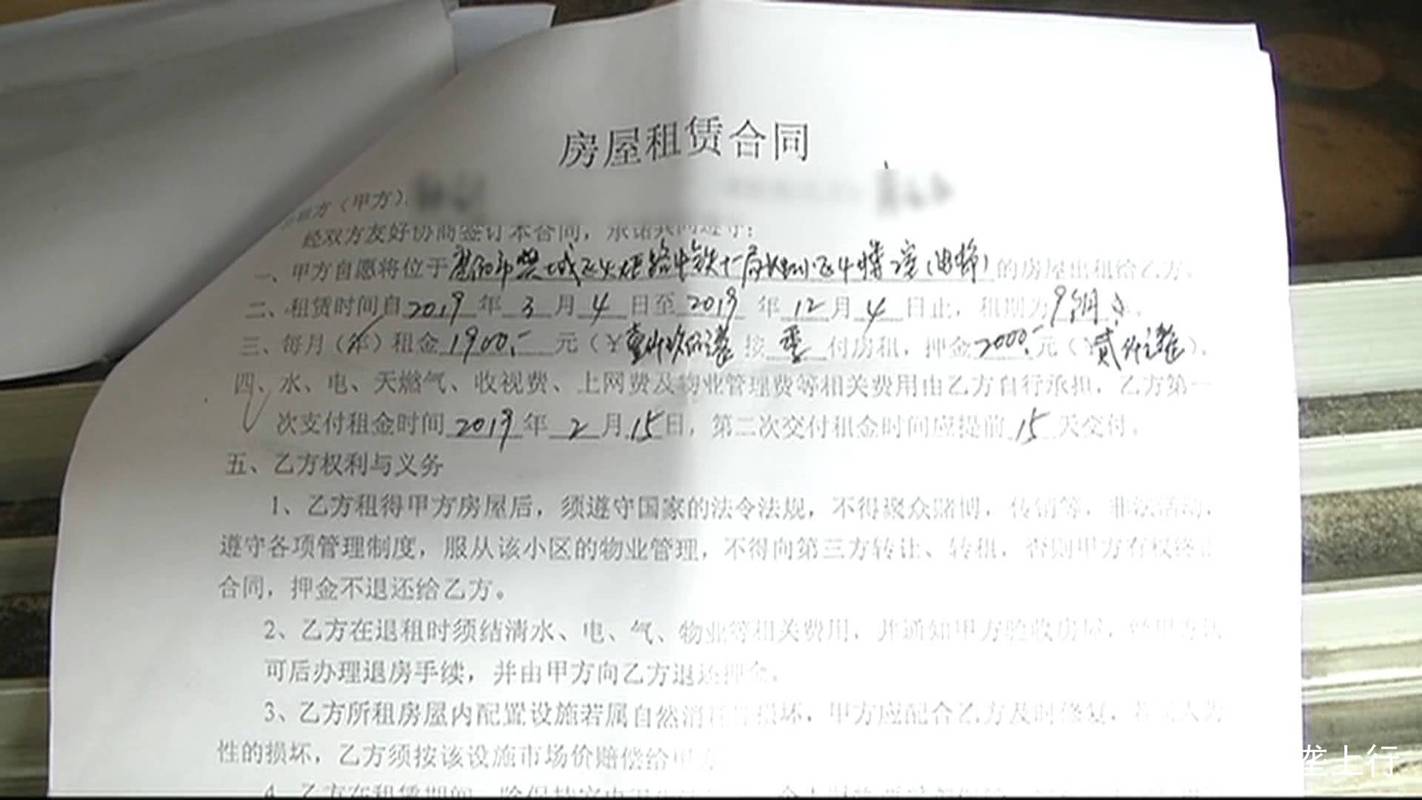 房屋租赁合同
方（甲方）
经双方友好协商签订本合同，承诺共同遵守：
一、甲方自愿将位于 的房屋出租给乙方。
二、租赁时间自2019年3月4日至2019年12月4日止，租期为9个月
三、每月（年）租金1900元（￥壹仟玖佰 按季付房租，押金2000元（ 贰仟 ）。
四、水、电、天燃气、收视费、上网费及物业管理费等相关费用由乙方自行承担，乙方第一
次支付租金时间2019年2月15日，第二次交付租金时间应提前15天交付。
五、乙方权利与义务
1、乙方租得甲方房屋后，须遵守国家的法令法规，不得聚众赌博，传销等，非法活动，
遵守各项管理制度，服从该小区的物业管理，不得向第三方转让、转租，否则甲方有权终止
合同，押金不退还给乙方。
2、乙方在退租时须结清水、电、气、物业等相关费用，并通知甲方验收房屋，经甲方认
可后办理退房手续，并由甲方向乙方退还押金。
3、乙方所租房屋内配置设施若属自然消耗 损坏，甲方应配合乙方及时修复，若 人为
性的损坏，乙方须按该设施市场价赔偿给甲方
4、乙方在租赁期间，除保持室内
垄上行